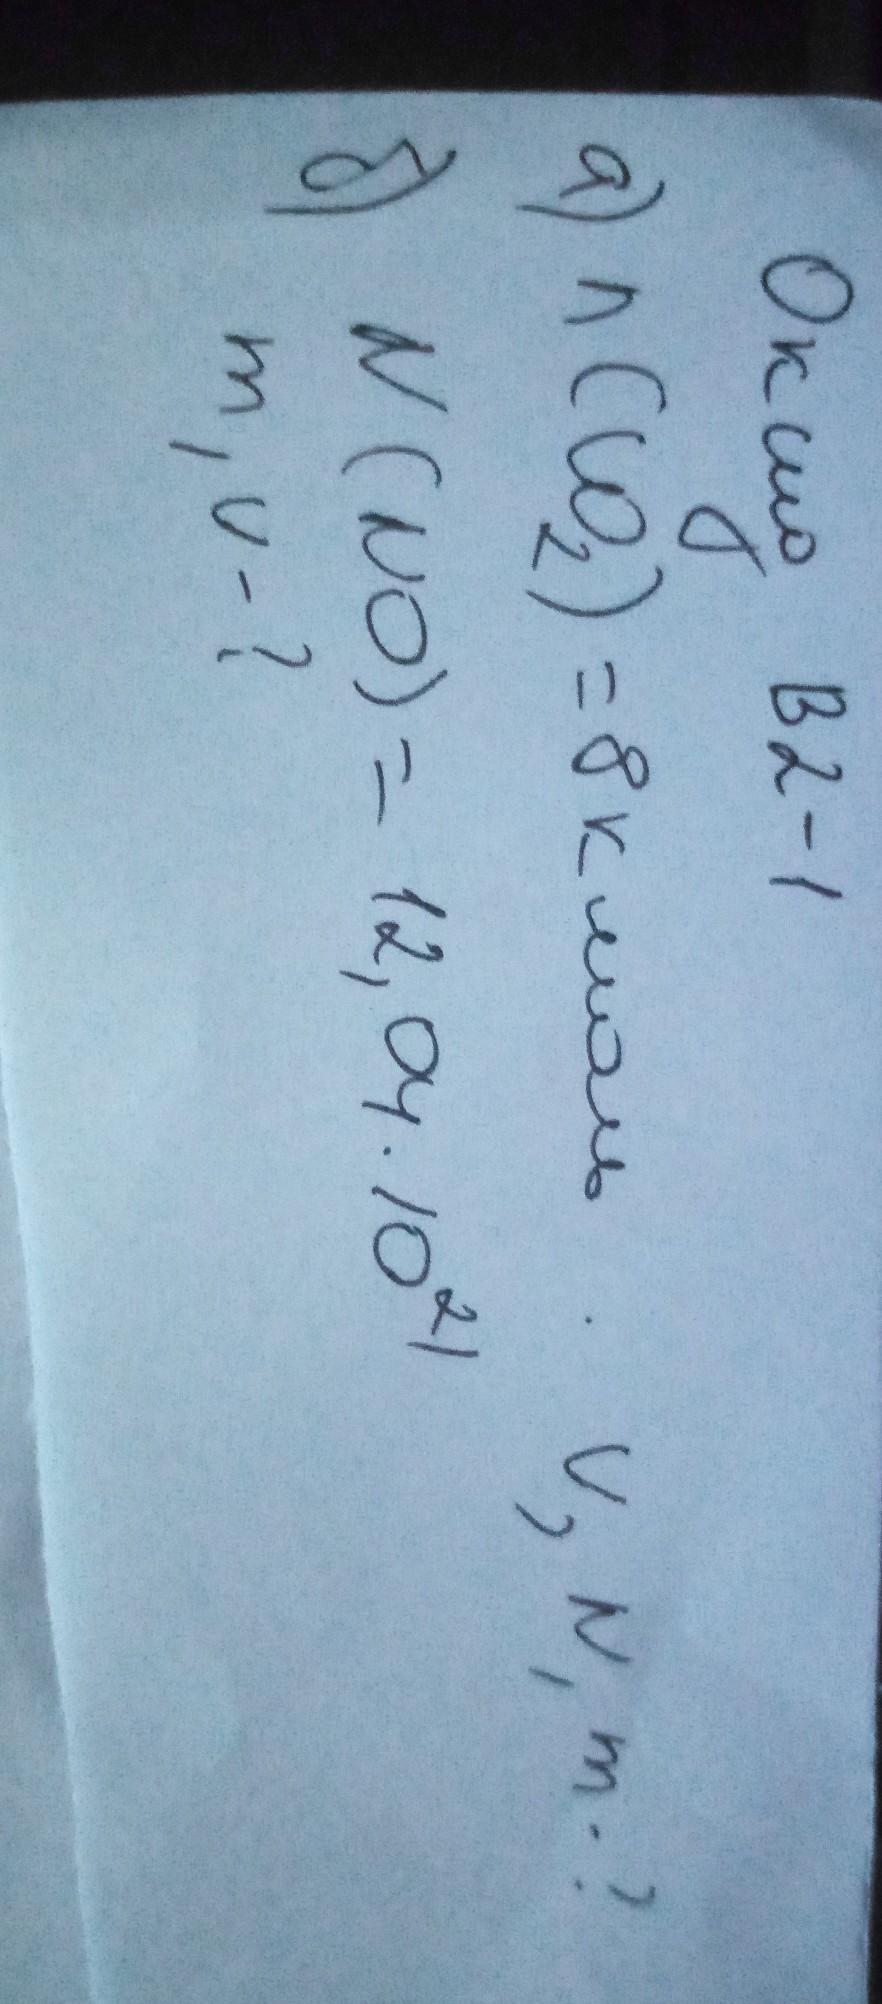 Оксид В2-1
а) n(CO₂) = 8 кмоль. V, N, m - ?
б) N(NO) = 12,04·10²¹
m, V - ?